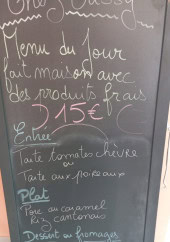 Chez Jassy
Menu du Jour
fait maison avec
des produits frais
15€
Entrée
Tarte tomates chèvre
ou
Tarte aux poireaux
Plat
Porc au caramel
Riz cantonais
Dessert ou fromages